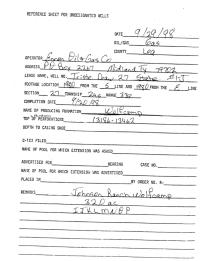 REFERENCE SHEET FOR UNDESIGNATED WELLS
DATE 9/29/98
OIL/GAS Gas
COUNTY Lea
OPERATOR Enron Oil & Gas Co
ADDRESS PO Box 2267 Midland Tx 79702
LEASE NAME, WELL NO. Triste Draw 27 State #1
FOOTAGE LOCATION 1980 FROM THE S LINE AND 1980 FROM THE E LINE
SECTION 27 TOWNSHIP 24S RANGE 33E
COMPLETION DATE 9/20/98
NAME OF PRODUCING FORMATION Wolfcamp
TOP OF PERFORATIONS 13156-13462
DEPTH TO CASING SHOE
C-123 FILED
NAME OF POOL FOR WHICH EXTENSION WAS ASKED
ADVERTISED FOR HEARING CASE NO.
NAME OF POOL FOR WHICH EXTENSION WAS ADVERTISED
PLACED IN BY ORDER NO. R-
REMARKS Johnson Ranch Wolfcamp
320 ac
IJKLMNOP